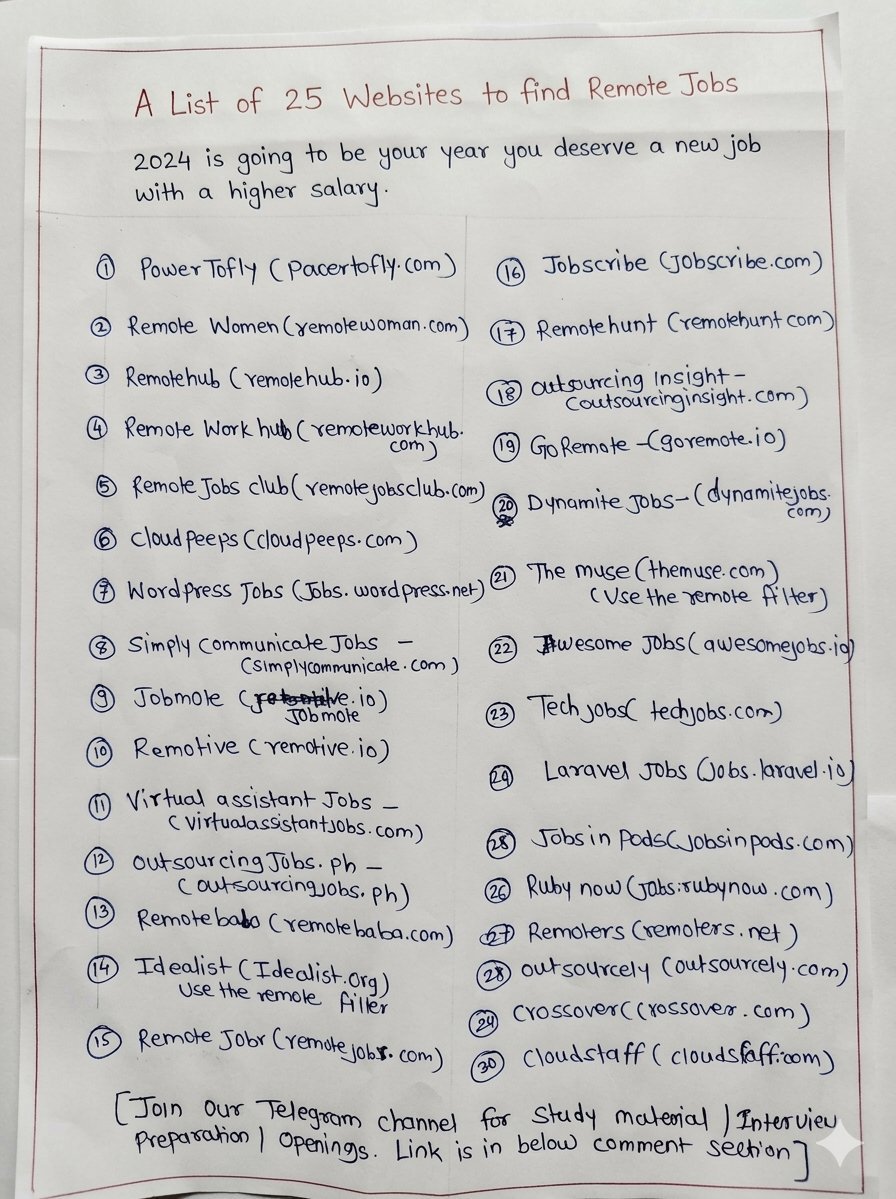 A List of 25 Websites to find Remote Jobs
2024 is going to be your year you deserve a new job
with a higher salary.
① PowerTofly (pacertofly.com)
② Remote Women (remotewoman.com)
③ Remotehub (remotehub.io)
④ Remote Work hub (remoteworkhub.
com)
⑤ Remote Jobs club (remotejobsclub.com)
⑥ cloudpeeps (cloudpeeps.com)
⑦ Wordpress Jobs (Jobs.wordpress.net)
⑧ Simply communicate Jobs –
(simplycommunicate.com)
⑨ Jobmote (.io)
Jobmote
⑩ Remotive (remotive.io)
⑪ Virtual assistant Jobs –
(virtualassistantjobs.com)
⑫ outsourcing Jobs.ph –
(outsourcingjobs.ph)
⑬ Remotebaba (remotebaba.com)
⑭ Idealist (Idealist.org)
Use the remote filter
⑮ Remote Jobr (remotejobr.com)
⑯ Jobscribe (Jobscribe.com)
⑰ Remotehunt (remotehunt com)
⑱ outsourcing Insight –
(outsourcinginsight.com)
⑲ GoRemote – (goremote.io)
⑳ Dynamite Jobs – (dynamitejobs.
com)
㉑ The muse (themuse.com)
(Use the remote filter)
㉒ Awesome Jobs (awesomejobs.io)
㉓ Tech jobs( techjobs.com)
㉙ Laravel Jobs (Jobs.laravel.io)
㉘ Jobs in Pods (Jobsinpods.com)
㉖ Ruby now (Jobs:rubynow.com)
㉗ Remoters (remoters.net)
㉘ outsourcely (outsourcely.com)
㉙ crossover ((rossover.com)
㉚ cloudstaff (cloudstaff.com)
[Join our Telegram channel for study material | Interview
preparation | Openings. Link is in below comment section]